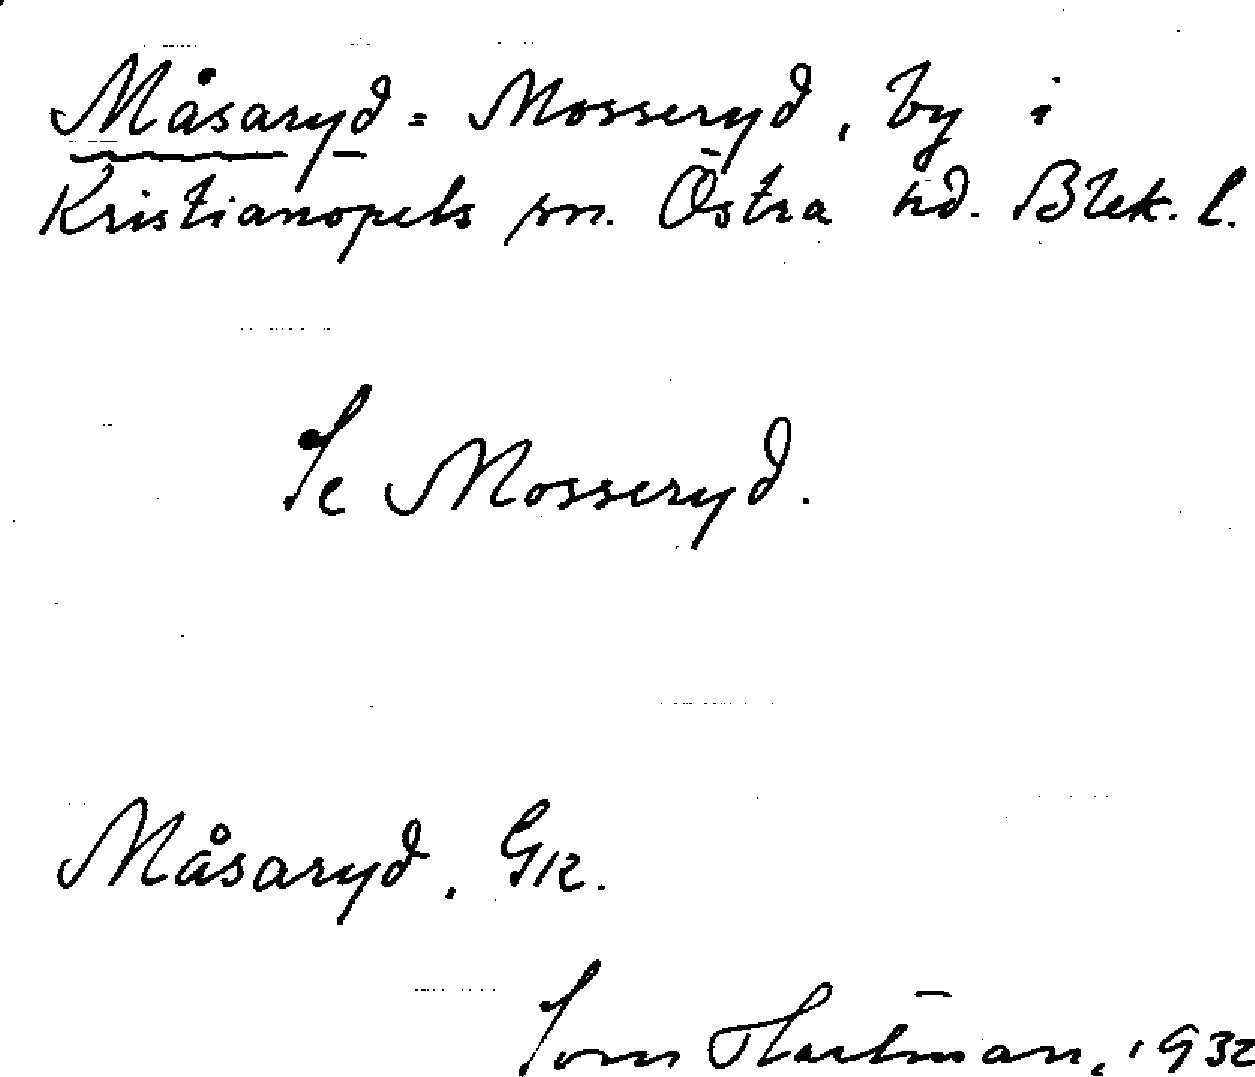 Måsaryd = Mosseryd, by i
Kristianopels sn. Östra hd. Blek. l.
Se Mosseryd.
Måsaryd. Gk.
Hartman, 1932